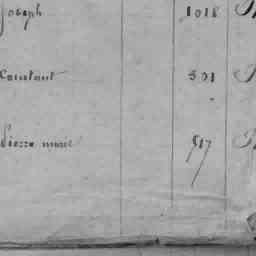 Joseph 1018
Constant 501
Pierre marie 517